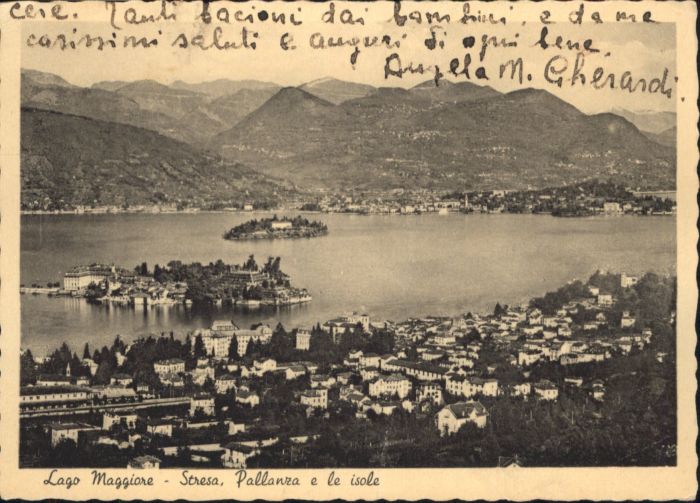 cere. Tanti bacioni dai bambini, e da me
carissimi saluti e auguri di ogni bene.
Angela M. Gherardi.
Lago Maggiore - Stresa, Pallanza e le isole